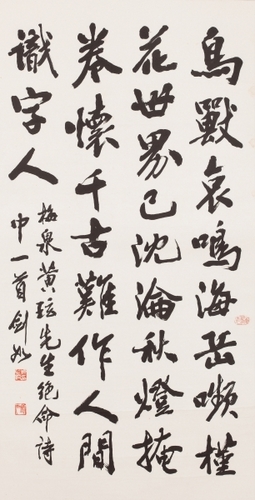 鳥獸哀鳴海岳嚬槿
花世界已沈淪秋燈掩
卷懷千古難作人間
識字人
梅泉黃玹先生絶命詩
中一首劍如